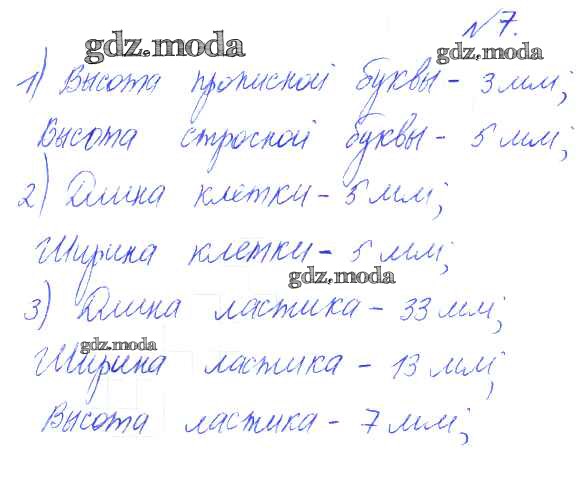 №7.
gdz.moda gdz.moda
1) Высота прописной буквы - 3 мм;
Высота стросной буквы - 5 мм;
2) Длина клетки - 5 мм;
Ширина клетки - 5 мм;
gdz.moda
3) Длина ластика - 33 мм;
gdz.moda
Ширина ластика - 13 мм;
Высота ластика - 7 мм;